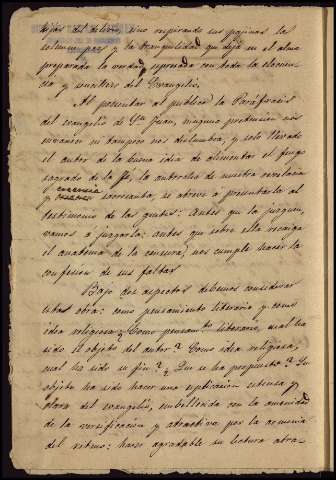 hijos del delirio, sino respirando sus paginas la
solemne paz y la tranquilidad que deja en el alma
preparada la verdad, expresada con toda la elocuen-
cia y sencillez del Evangelio.
Al presentar al público la Paráfrasis
del evangelio de Sn Juan, ninguna pretension nos
envanece ni tampoco nos deslumbra, y solo llevado
el autor de la buena idea de alimentar el fuego
sagrado de la fé, la antorcha de nuestra revelacion
y creencia sacrosanta, se atreve á presentarla al
testimonio de las gentes: Antes que la juzguen,
vamos á juzgarla: antes que sobre ella recaiga
el anatema de la censura, nos cumple hacer la
confesion de sus faltas
Bajo dos aspectos debemos considerar
esta obra: como pensamiento literario y como
idea religiosa; ¿Como pensamto literario, cual ha
sido el objeto del autor? Como idea religiosa,
cual ha sido su fin? ¿Que se ha propuesto? Su
objeto ha sido hacer una esplicacion estensa y
clara del evangelio, embellecida con la amenidad
de la versificacion y atractiva por la armonia
del ritmo: hacer agradable su lectura atra-